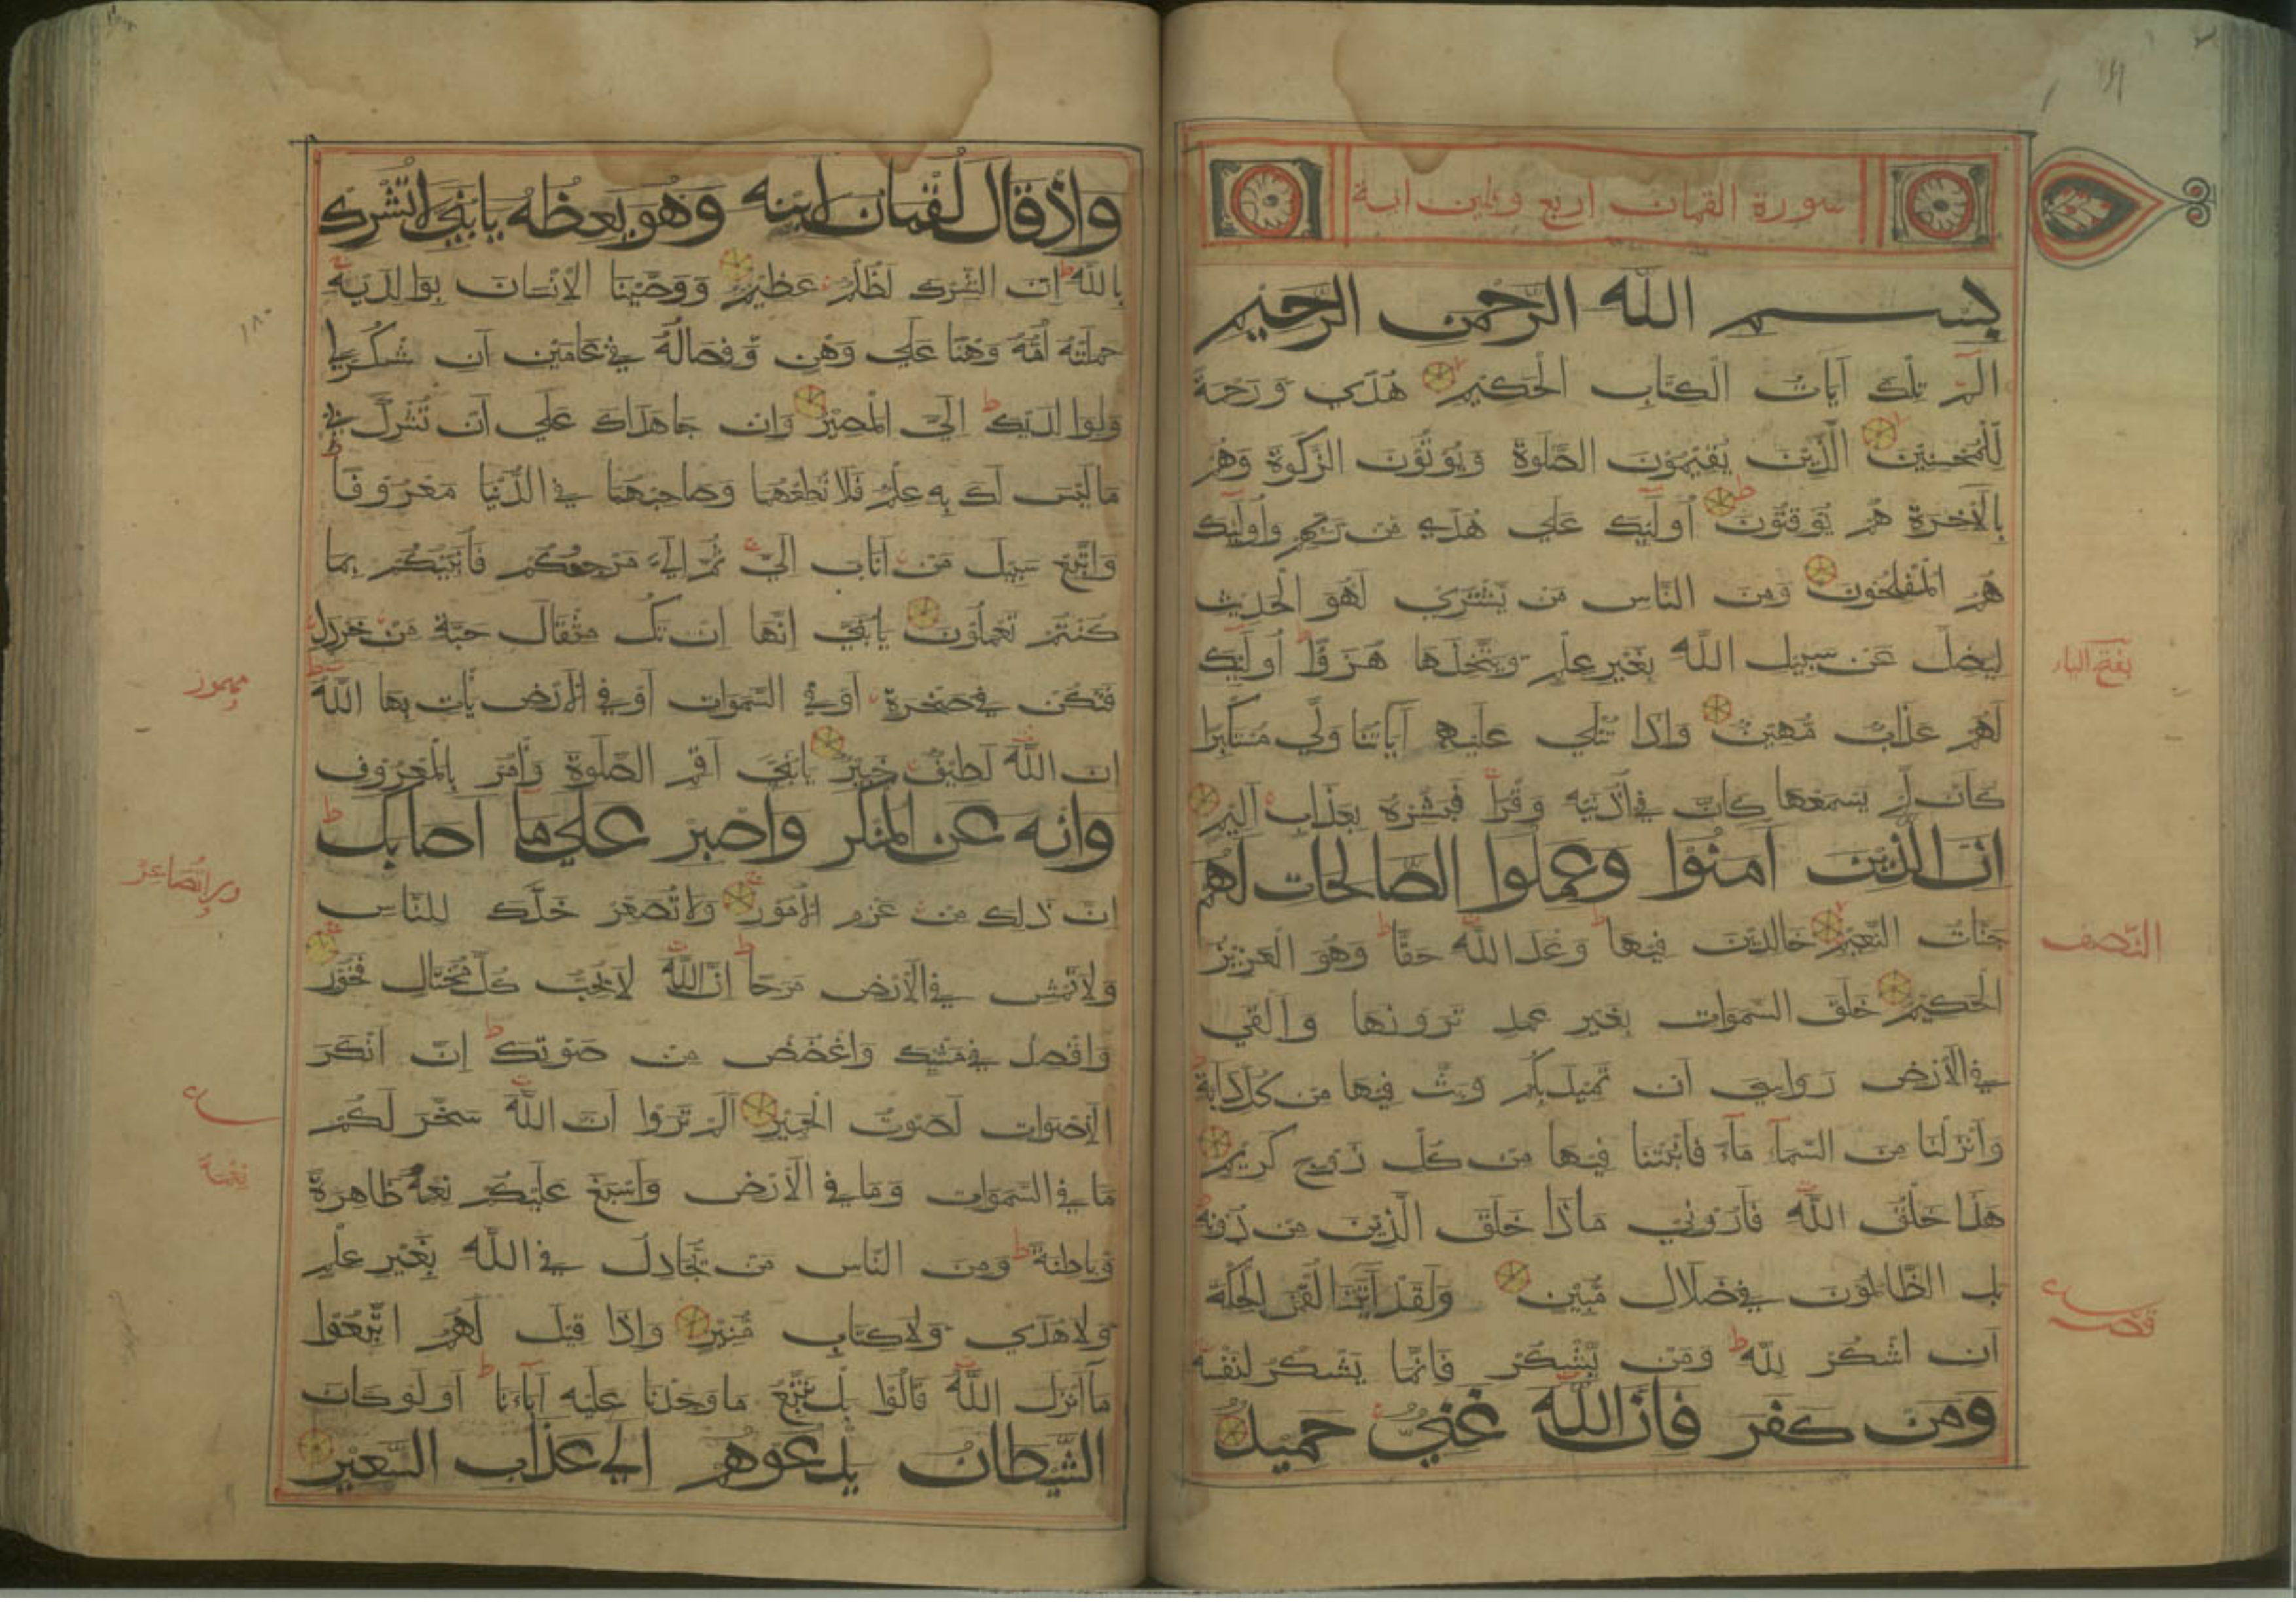 سورة القمان اربع وثلثين اية
بسم الله الرحمن الرحيم
الم تِلْكَ آيَاتُ الْكِتَابِ الْحَكِيْمِ هُدًى وَرَحْمَةً
لِلْمُحْسِنِيْنَ الَّذِيْنَ يُقِيْمُوْنَ الصَّلٰوةَ وَيُوْتُوْنَ الزَّكٰوةَ وَهُمْ
بِالْآخِرَةِ هُمْ يُوْقِنُوْنَ أُولَئِكَ عَلَى هُدًى مِنْ رَبِّهِمْ وَأُولَئِكَ
هُمُ الْمُفْلِحُوْنَ وَمِنَ النَّاسِ مَنْ يَشْتَرِي لَهْوَ الْحَدِيْثِ
لِيُضِلَّ عَنْ سَبِيْلِ اللّٰهِ بِغَيْرِ عِلْمٍ وَيَتَّخِذُهَا هُزُوًا أُولَئِكَ
لَهُمْ عَذَابٌ مُهِيْنٌ وَإِذَا تُتْلَى عَلَيْهِ آيَاتُنَا وَلَّى مُسْتَكْبِرًا
كَأَنْ لَمْ يَسْمَعْهَا كَأَنَّ فِي أُذُنَيْهِ وَقْرًا فَبَشِّرْهُ بِعَذَابٍ أَلِيْمٍ
انَّ الَّذِيْنَ آمَنُوْا وَعَمِلُوا الصَّالِحَاتِ لَهُمْ
جَنَّاتُ النَّعِيْمِ خَالِدِيْنَ فِيْهَا وَعْدَ اللّٰهِ حَقًّا وَهُوَ الْعَزِيْزُ
الْحَكِيْمُ خَلَقَ السَّمٰوَاتِ بِغَيْرِ عَمَدٍ تَرَوْنَهَا وَأَلْقَى
فِي الْأَرْضِ رَوَاسِيَ أَنْ تَمِيْدَ بِكُمْ وَبَثَّ فِيْهَا مِنْ كُلِّ دَابَّةٍ
وَأَنْزَلْنَا مِنَ السَّمَآءِ مَآءً فَأَنْبَتْنَا فِيْهَا مِنْ كُلِّ زَوْجٍ كَرِيْمٍ
هَذَا خَلْقُ اللّٰهِ فَأَرُوْنِي مَاذَا خَلَقَ الَّذِيْنَ مِنْ دُوْنِهِ
بَلِ الظَّالِمُوْنَ فِي ضَلَالٍ مُبِيْنٍ وَلَقَدْ آتَيْنَا لُقْمٰنَ الْحِكْمَةَ
أَنِ اشْكُرْ لِلّٰهِ وَمَنْ يَشْكُرْ فَإِنَّمَا يَشْكُرُ لِنَفْسِهِ
وَمَنْ كَفَرَ فَإِنَّ اللّٰهَ غَنِيٌّ حَمِيْدٌ
بفتح الياء
النصف
قصر
وَإِذْ قَالَ لُقْمَانُ لِابْنِهِ وَهُوَ يَعِظُهُ يَابُنَيَّ لَا تُشْرِكْ
بِاللّٰهِ إِنَّ الشِّرْكَ لَظُلْمٌ عَظِيْمٌ وَوَصَّيْنَا الْإِنْسَانَ بِوَالِدَيْهِ
حَمَلَتْهُ أُمُّهُ وَهْنًا عَلَى وَهْنٍ وَفِصَالُهُ فِي عَامَيْنِ أَنِ اشْكُرْ لِي
وَلِوَالِدَيْكَ إِلَيَّ الْمَصِيْرُ وَإِنْ جَاهَدَاكَ عَلَى أَنْ تُشْرِكَ بِي
مَا لَيْسَ لَكَ بِهِ عِلْمٌ فَلَا تُطِعْهُمَا وَصَاحِبْهُمَا فِي الدُّنْيَا مَعْرُوْفًا
وَاتَّبِعْ سَبِيْلَ مَنْ أَنَابَ إِلَيَّ ثُمَّ إِلَيَّ مَرْجِعُكُمْ فَأُنَبِّئُكُمْ بِمَا
كُنْتُمْ تَعْمَلُوْنَ يَابُنَيَّ إِنَّهَا إِنْ تَكُ مِثْقَالَ حَبَّةٍ مِنْ خَرْدَلٍ
فَتَكُنْ فِي صَخْرَةٍ أَوْ فِي السَّمٰوَاتِ أَوْ فِي الْأَرْضِ يَأْتِ بِهَا اللّٰهُ
إِنَّ اللّٰهَ لَطِيْفٌ خَبِيْرٌ يَابُنَيَّ أَقِمِ الصَّلٰوةَ وَأْمُرْ بِالْمَعْرُوْفِ
وَانْهَ عَنِ الْمُنْكَرِ وَاصْبِرْ عَلَى مَا أَصَابَكَ
إِنَّ ذَلِكَ مِنْ عَزْمِ الْأُمُوْرِ وَلَا تُصَعِّرْ خَدَّكَ لِلنَّاسِ
وَلَا تَمْشِ فِي الْأَرْضِ مَرَحًا إِنَّ اللّٰهَ لَا يُحِبُّ كُلَّ مُخْتَالٍ فَخُوْرٍ
وَاقْصِدْ فِي مَشْيِكَ وَاغْضُضْ مِنْ صَوْتِكَ إِنَّ أَنْكَرَ
الْأَصْوَاتِ لَصَوْتُ الْحَمِيْرِ أَلَمْ تَرَوْا أَنَّ اللّٰهَ سَخَّرَ لَكُمْ
مَا فِي السَّمٰوَاتِ وَمَا فِي الْأَرْضِ وَأَسْبَغَ عَلَيْكُمْ نِعَمَهُ ظَاهِرَةً
وَبَاطِنَةً وَمِنَ النَّاسِ مَنْ يُجَادِلُ فِي اللّٰهِ بِغَيْرِ عِلْمٍ
وَلَا هُدًى وَلَا كِتَابٍ مُنِيْرٍ وَإِذَا قِيْلَ لَهُمُ اتَّبِعُوْا
مَا أَنْزَلَ اللّٰهُ قَالُوْا بَلْ نَتَّبِعُ مَا وَجَدْنَا عَلَيْهِ آبَآءَنَا أَوَلَوْ كَانَ
الشَّيْطَانُ يَدْعُوْهُمْ إِلَى عَذَابِ السَّعِيْرِ
١٨٠
مهموز
نِعْمَةً